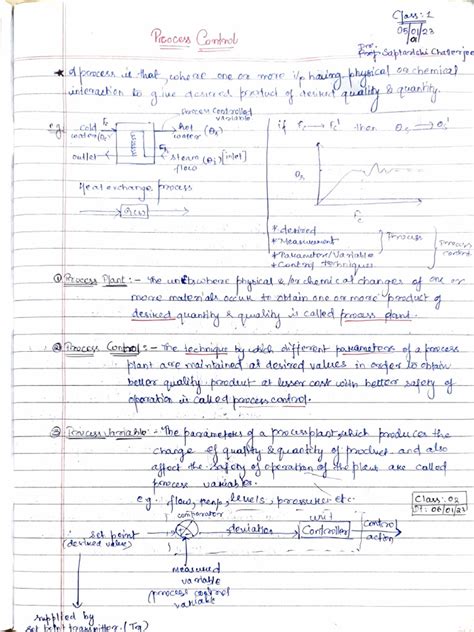 Class: 1
05/01/23
Process Control
Prof. Saptarshi Chaterjee
* A process is that, where one or more i/p having physical or chemical
interaction to give desired product of desired quality & quantity.
e.g.
cold water (θc)
Fc
Process controlled variable
hot water (θR)
outlet
Fs
steam flow (θi) [inlet]
Heat exchange process
if Fc → Fc' then θR → θR'
θR
Fc
* desired
* Measurement
* Parameter/Variable
* Control techniques
Process
Process control
① Process Plant :- The unit where physical &/or chemical changes of one or
more materials occur to obtain one or more product of
desired quantity & quality is called process plant.
② Process Control :- The technique by which different parameters of a process
plant are maintained at desired values in order to obtain
better quality product at lesser cost with better safety of
operation is called process control.
③ Process Variable :- The parameters of a process plant, which produce the
change of quality & quantity of product and also
affect the safety of operation of the plant are called
process variable.
e.g. flow, temp, levels, pressure etc.
Class: 02
Dt: 06/01/23
comparator
set point
(desired value)
deviation
unit
Controller
Control action
Measured
variable
(process control
variable)
supplied by
set point transmitter.